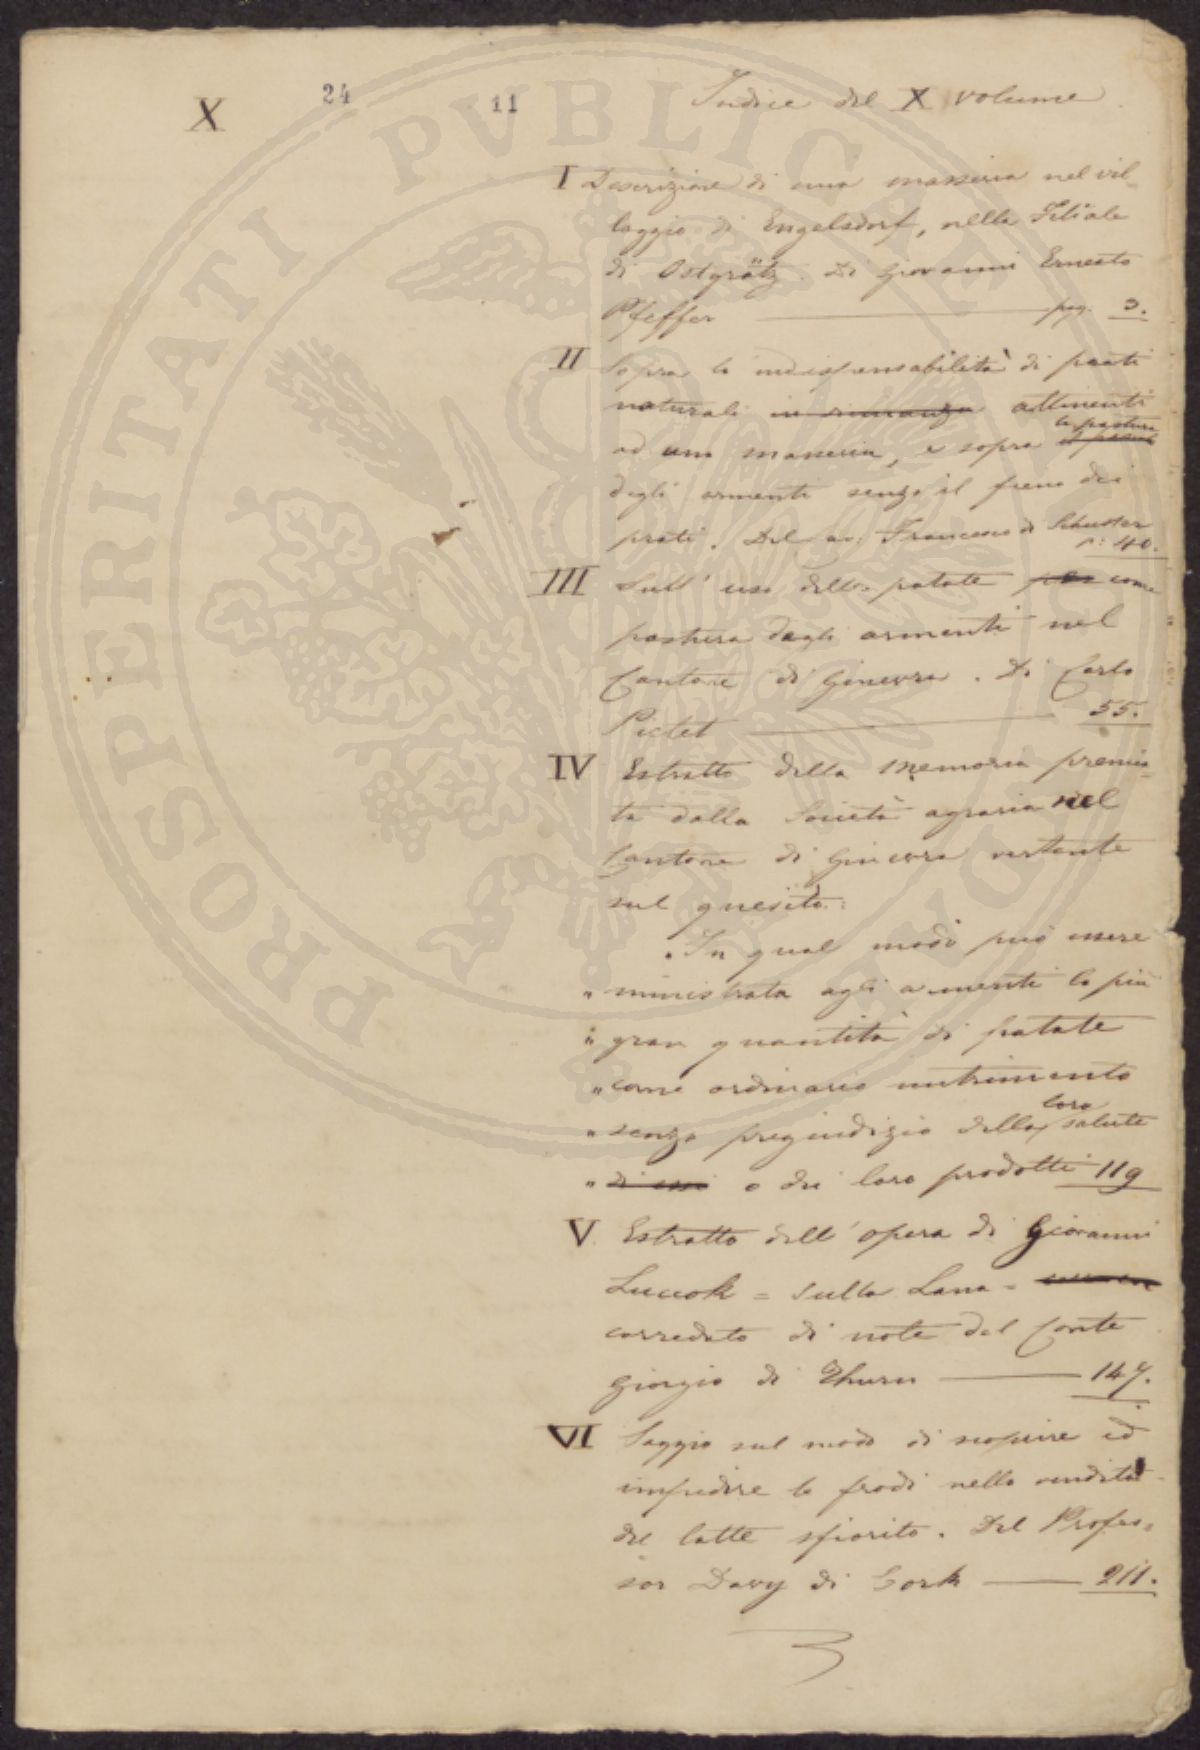 X
24
11
Indice del X volume
I Descrizione di una masseria nel vil-
laggio di Engelsdorf, nella Filiale
di Ostgrätz. Di Giovanni Ernesto
Pfeffer pag. 3.
II Sopra la indispensabilità di prati
naturali in vicinanza attinenti
ad una masseria, e sopra la pastura
degli armenti senza il fieno dei
prati. Del Francesco di Schuster
p: 40.
III Sull' uso delle patate per come
pastura degli armenti nel
Cantone di Ginevra. Di Carlo
Pictet 55.
IV Estratto della memoria premia-
ta dalla Società agraria nel
Cantone di Ginevra vertente
sul quesito:
"In qual modo può essere
" ministrata agli armenti la più
" gran quantità di patate
" come ordinario nutrimento
" senza pregiudizio della loro salute
" di essi o dei loro prodotti 119
V. Estratto dell' opera di Giovanni
Luccok = Sulla Lana =
corredato di note del Conte
Giorgio di Thurn 147.
VI Saggio sul modo di scoprire ed
impedire le frodi nella vendita
del latte sfiorito. Del Profes-
sor Davy di Cork 211.
PROSPERITATI PVBLICAE